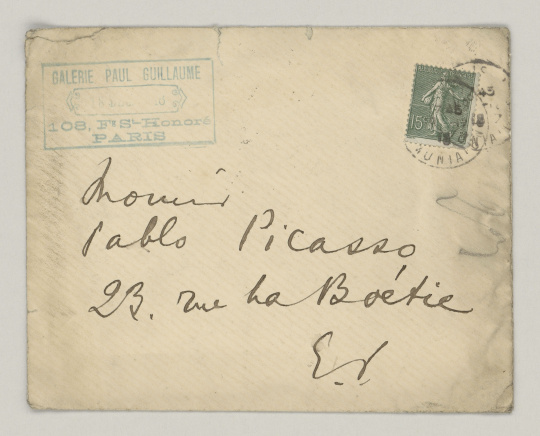 GALERIE PAUL GUILLAUME
108, Fg St-Honoré
PARIS
15c
45
18
Monsieur
Pablo Picasso
23. rue La Boétie
E.V.